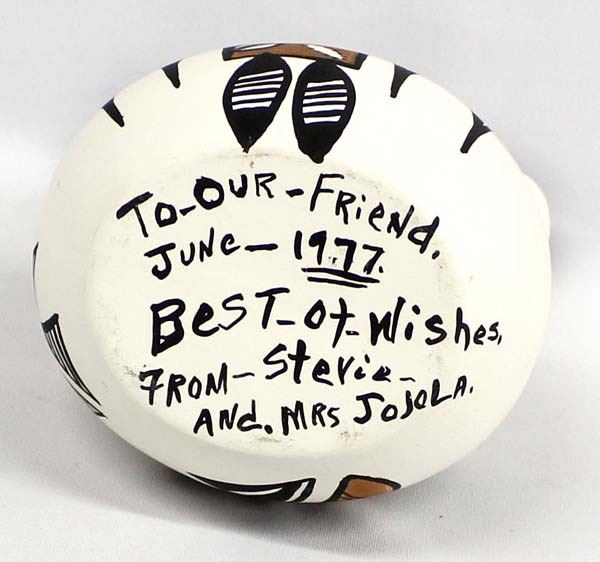 To-OUR-FRiend.
JUNe-1977.
BesT-of-Wishes,
FROM-Stevie-
AND. MRS JOJOLA.